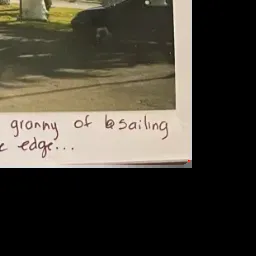 granny of @sailing
e edge...